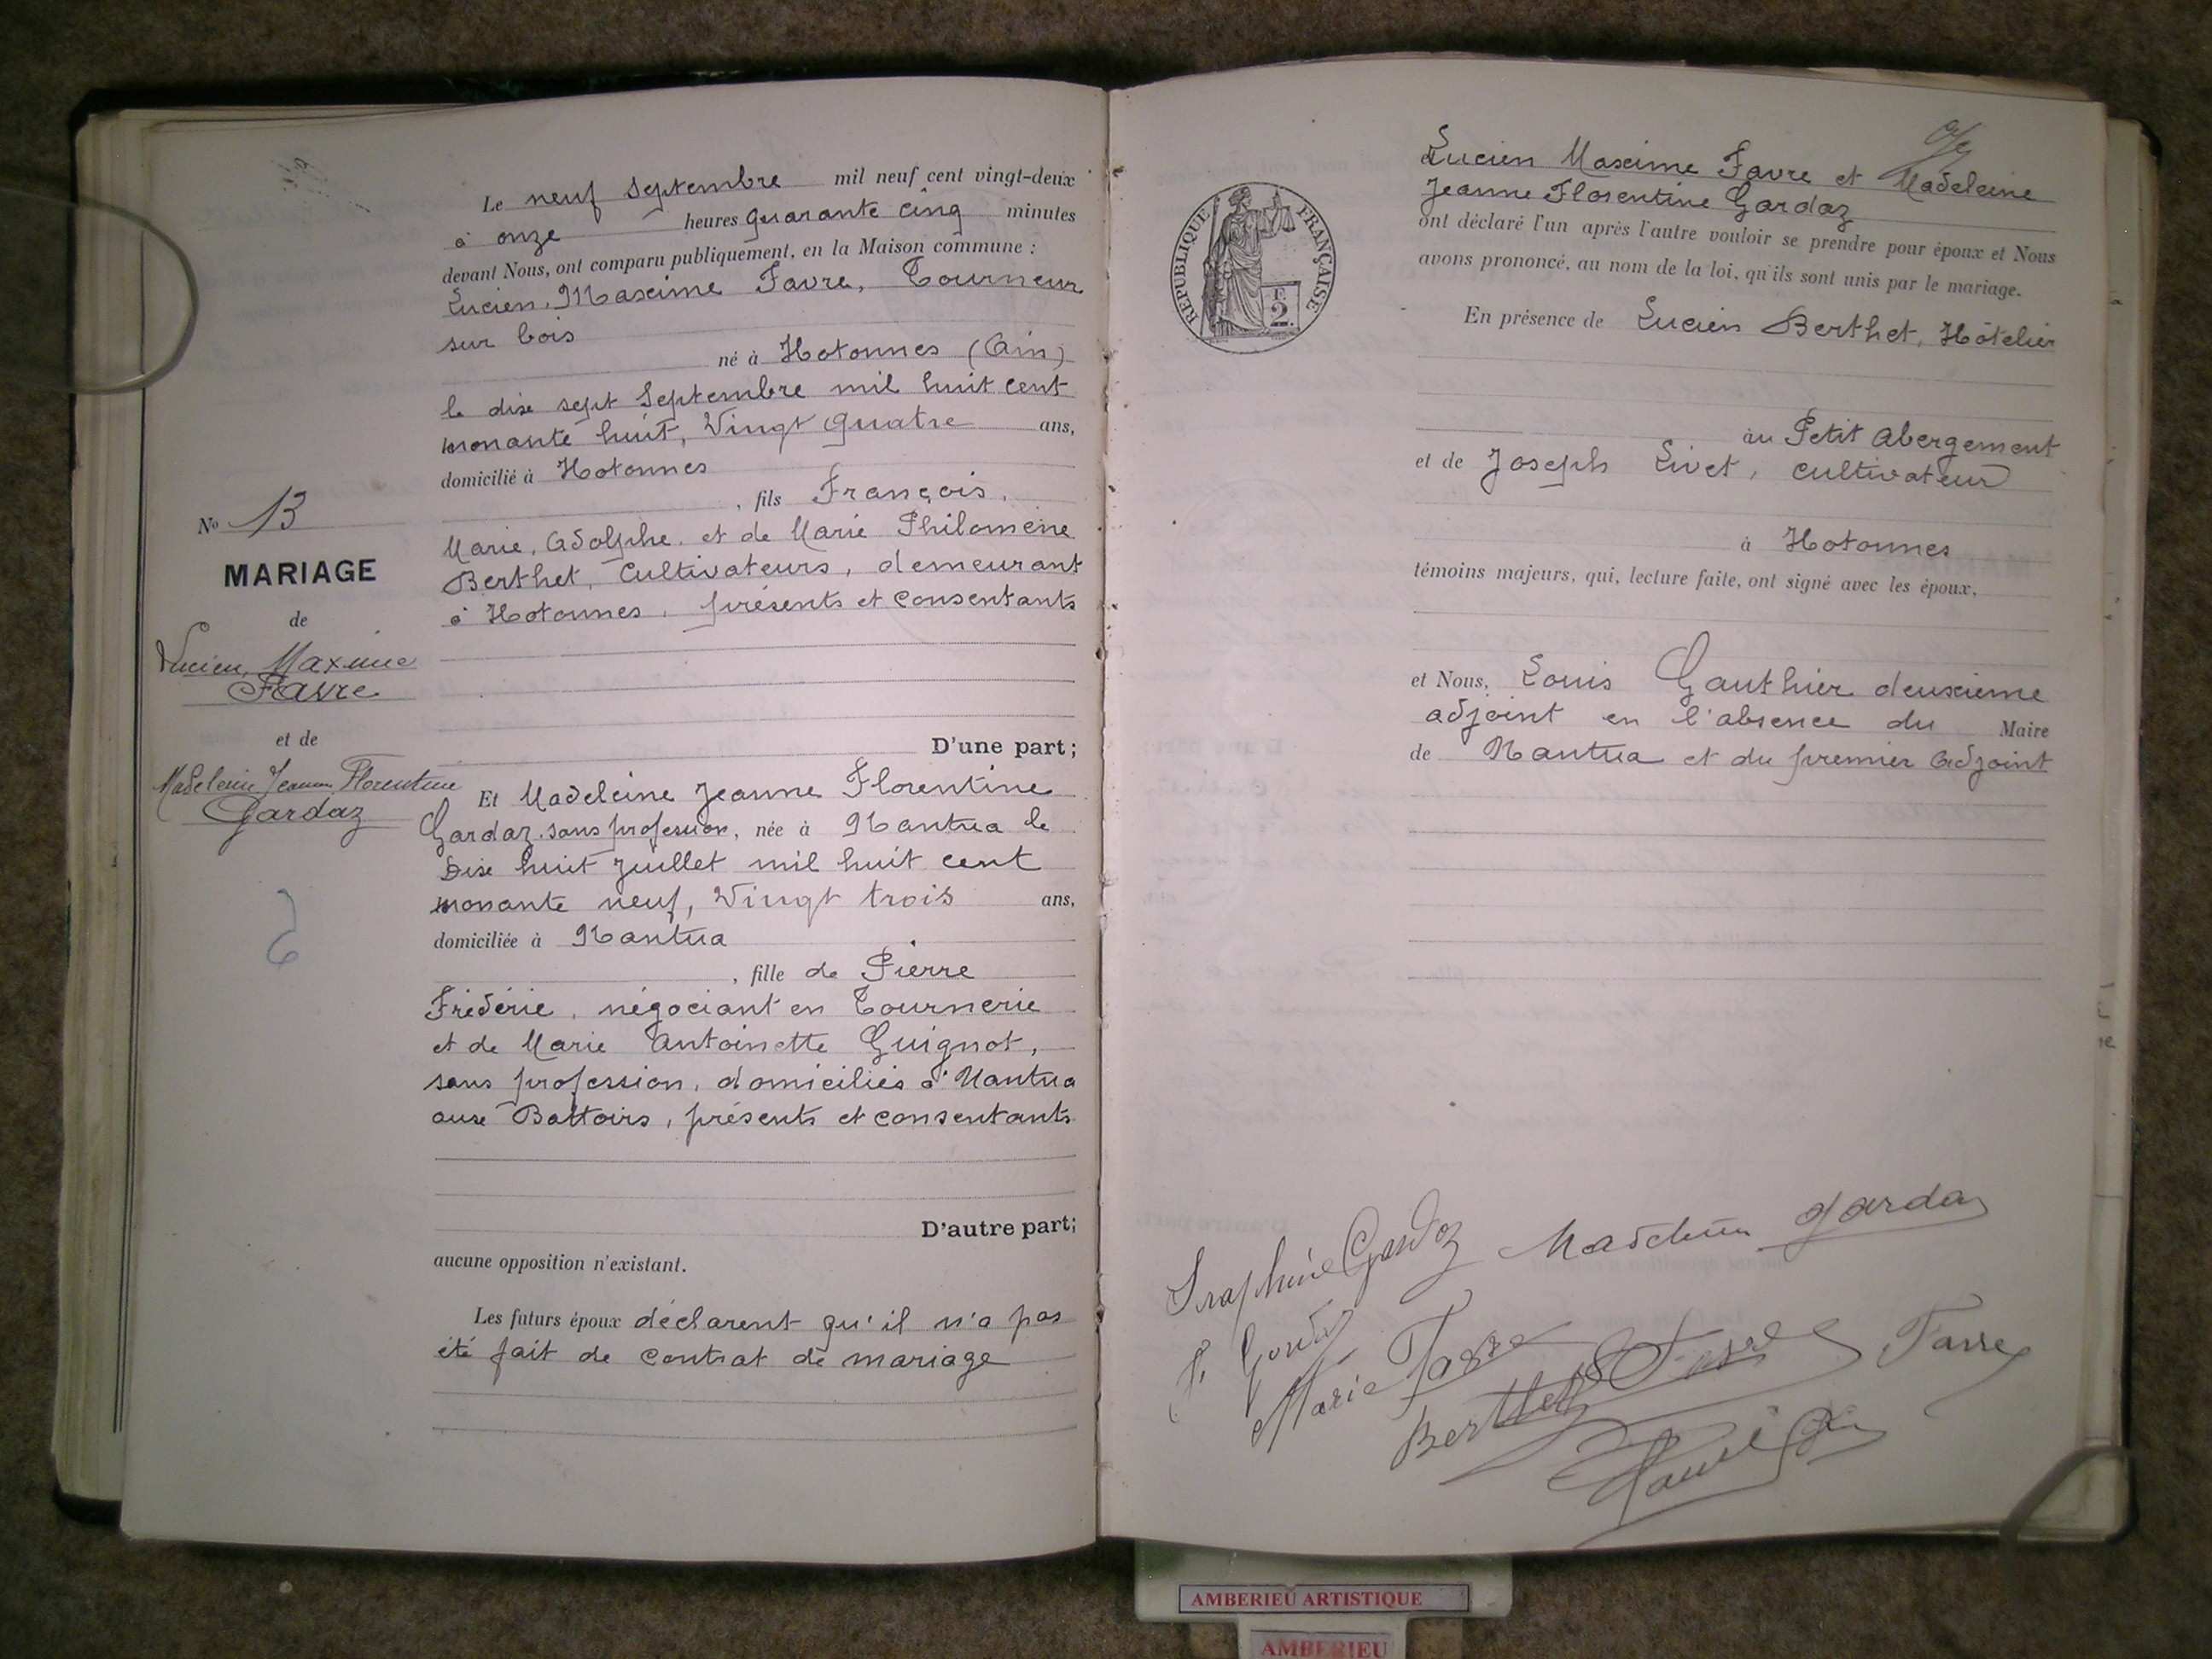 Le neuf Septembre mil neuf cent vingt-deux
à onze heures quarante cinq minutes
devant Nous, ont comparu publiquement, en la Maison commune :
Lucien, Maxime Favre, Tourneur
sur bois
né à Hotonnes (Ain)
le dix sept Septembre mil huit cent
nonante huit, Vingt quatre ans,
domicilié à Hotonnes
, fils François,
Marie, Adolphe, et de Marie Philomène
Berthet, Cultivateurs, demeurant
à Hotonnes, présents et consentants
D'une part;
No 13
MARIAGE
de
Lucien, Maxime
Favre
et de
Madeleine Jeanne Florentine
Gardaz
6
Et Madeleine Jeanne Florentine
Gardaz, sans profession, née à Nantua le
Dix huit Juillet mil huit cent
nonante neuf, Vingt trois ans,
domiciliée à Nantua
, fille de Pierre
Frédéric, négociant en Tournerie
et de Marie Antoinette Guignot,
sans profession, domiciliés à Nantua
aux Battoirs, présents et consentants
D'autre part;
aucune opposition n'existant.
Les futurs époux déclarent qu'il n'a pas
été fait de contrat de mariage
RÉPUBLIQUE FRANÇAISE
F.
2.
Lucien Maxime Favre et Madeleine
Jeanne Florentine Gardaz
ont déclaré l'un après l'autre vouloir se prendre pour époux et Nous
avons prononcé, au nom de la loi, qu'ils sont unis par le mariage.
En présence de Lucien Berthet, Hôtelier
au Petit Abergement
et de Joseph Livet, cultivateur
à Hotonnes
témoins majeurs, qui, lecture faite, ont signé avec les époux,
et Nous, Louis Gauthier deuxième
adjoint en l'absence du Maire
de Nantua et du premier Adjoint
Madeleine Gardaz
Marie Favre
Berthet
Favre
AMBERIEU ARTISTIQUE
AMBERIEU